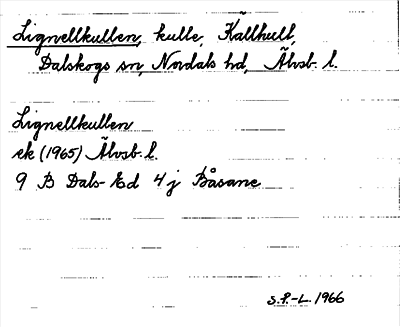 Lignellkullen, kulle, Källhult,
Dalskogs sn, Nordals hd, Älvsb. l.
Lignellkullen
ek (1965) Älvsb. l.
9 B Dals-Ed 4 j Båsane
S.P.-L. 1966